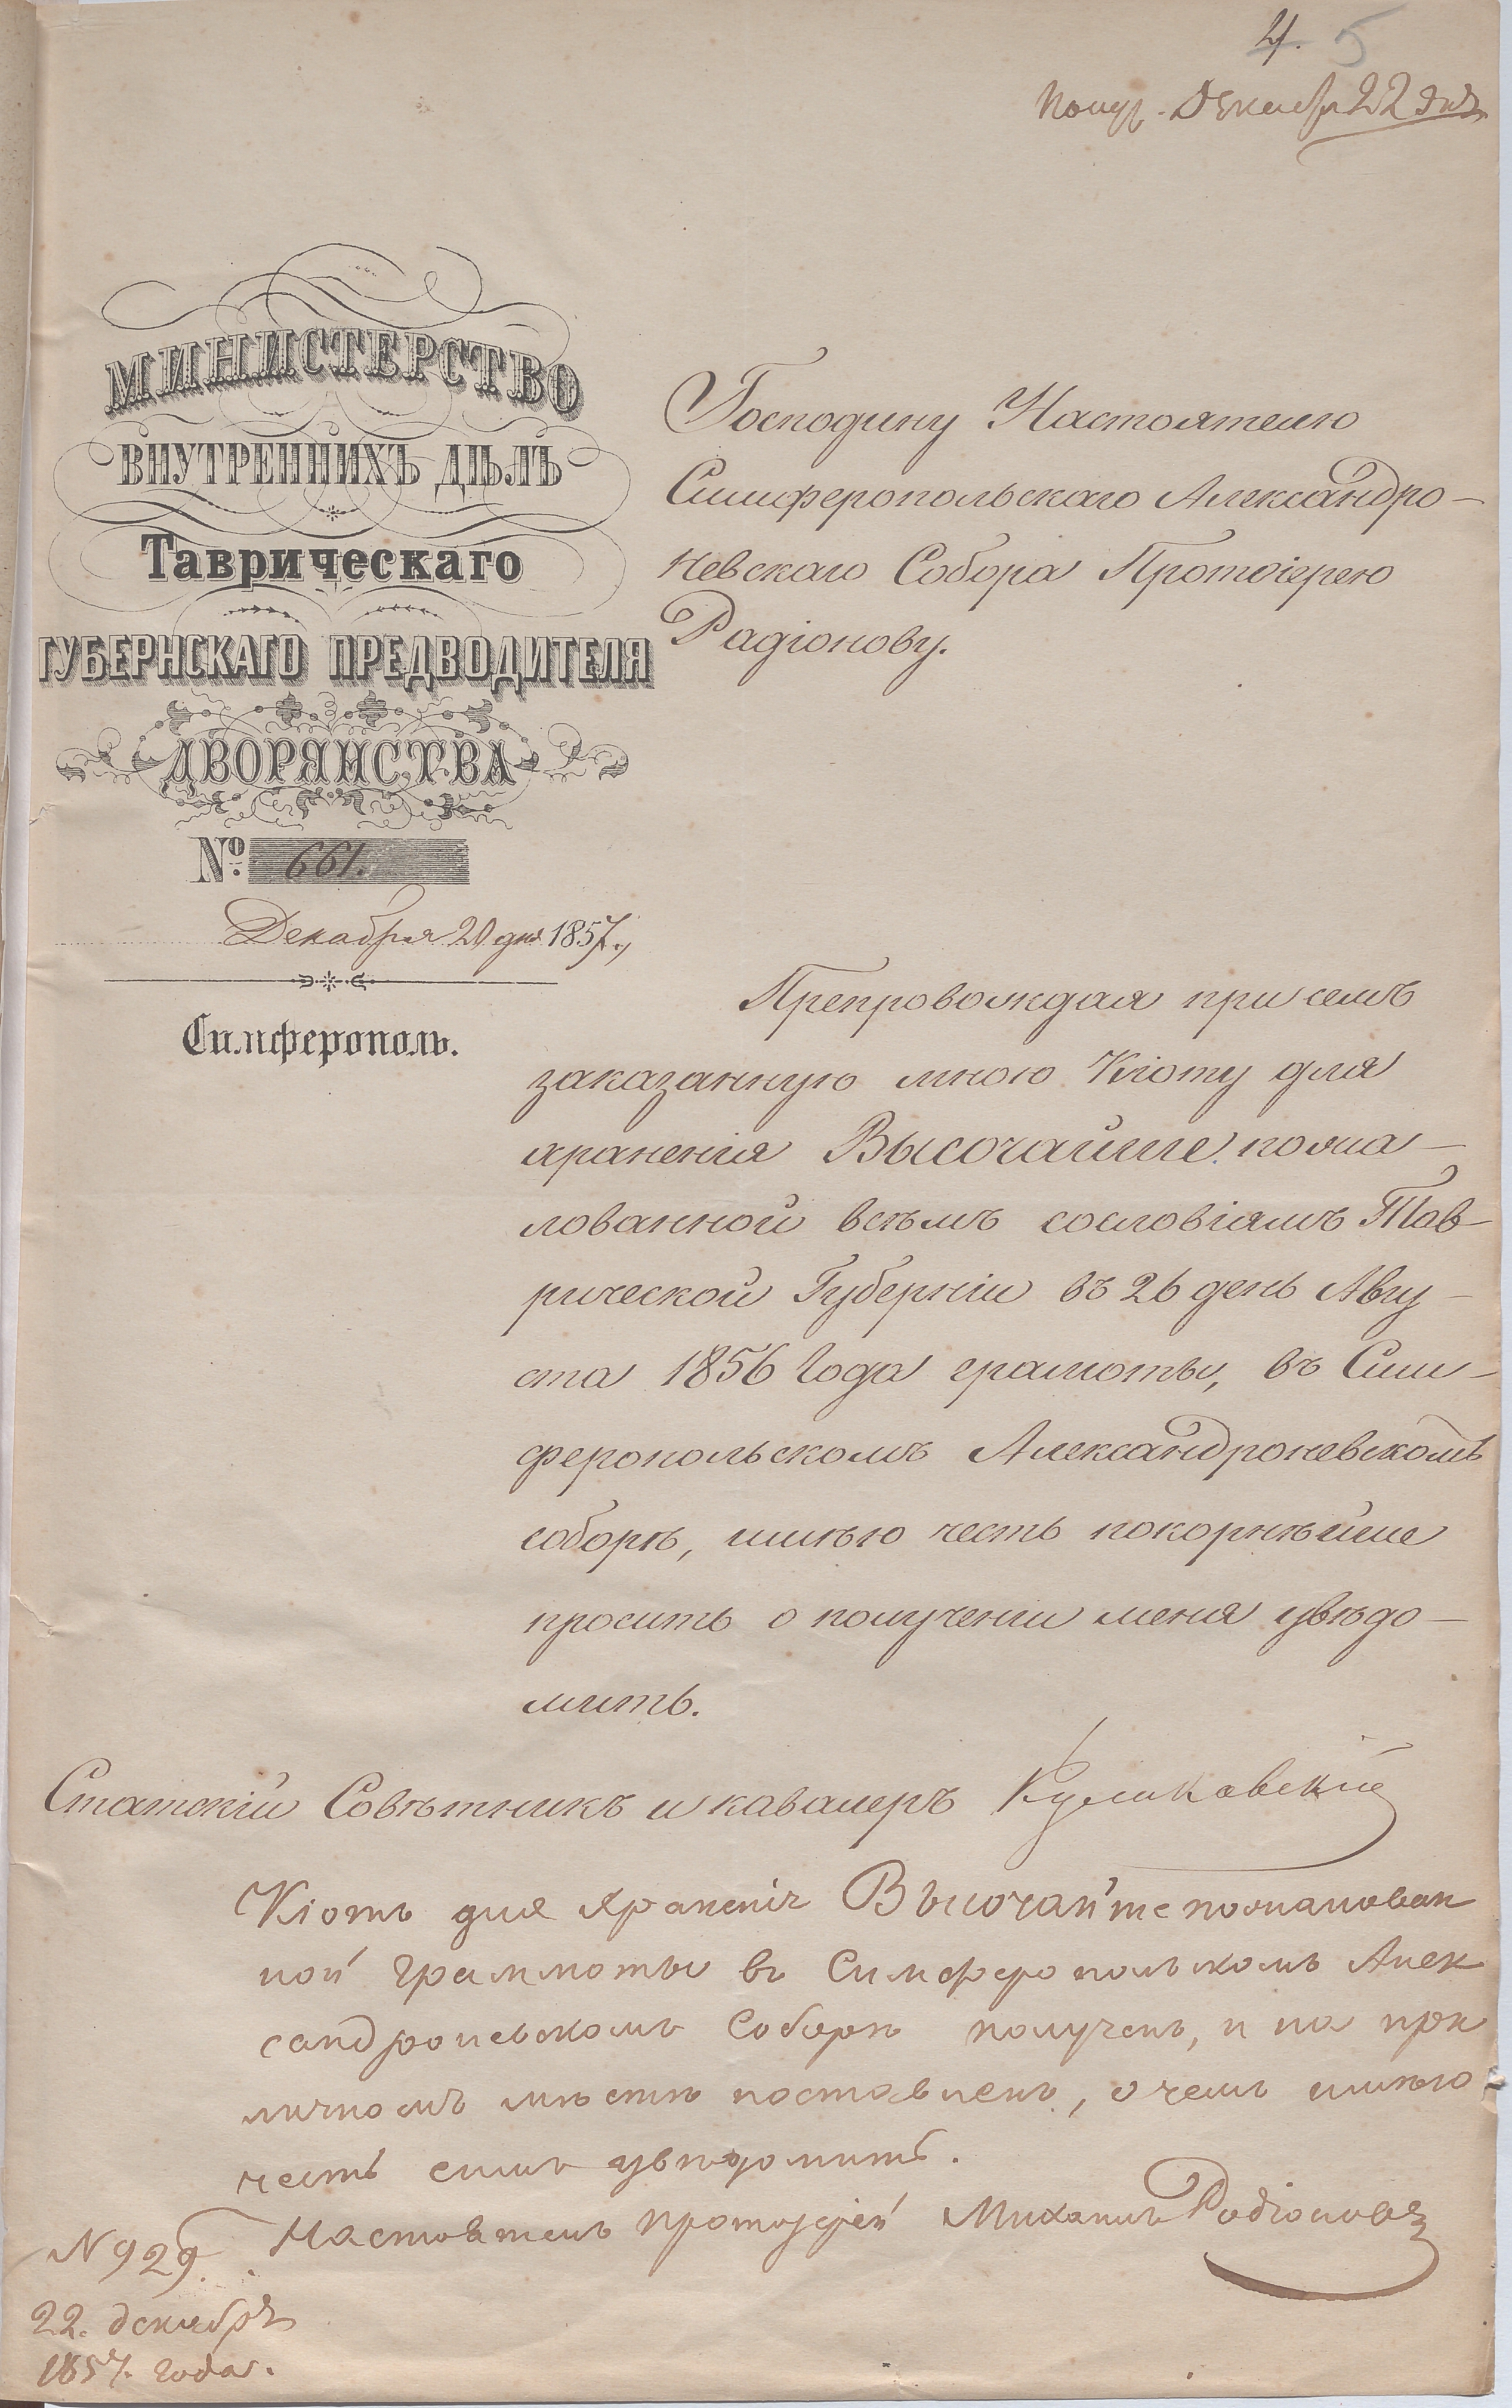 4. 5
Получ. Декабря 22 дня
МИНИСТЕРСТВО
ВНУТРЕННИХЪ ДѢЛЪ
Таврическаго
ГУБЕРНСКАГО ПРЕДВОДИТЕЛЯ
ДВОРЯНСТВА
№ 661.
Декабря 20 дня 1857 г.
Симферополь.
Господину Настоятелю
Симферопольскаго Александро-
невскаго Собора Протоіерею
Радіонову.
Препровождая при семъ
заказанную мною Кіоту для
храненія Высочайше пожа-
лованной всѣмъ сословіямъ Тав-
рической Губерніи въ 26 день Авгу-
ста 1856 года грамоты, въ Сим-
феропольскомъ Александроневскомъ
соборѣ, имѣю честь покорнѣйше
просить о полученіи меня увѣдо-
мить.
Статскій Совѣтникъ и кавалеръ
Кіотъ для храненія Высочайше пожалован
ной Граммоты въ Симферопольскомъ Алек
сандроневскомъ Соборѣ полученъ, и на при
личномъ мѣстѣ поставленъ, о чемъ имѣю
честь симъ увѣдомить.
Настоятель Протоіерей Михаилъ Родіоновъ
N 929.
22. декабря
1857. года.